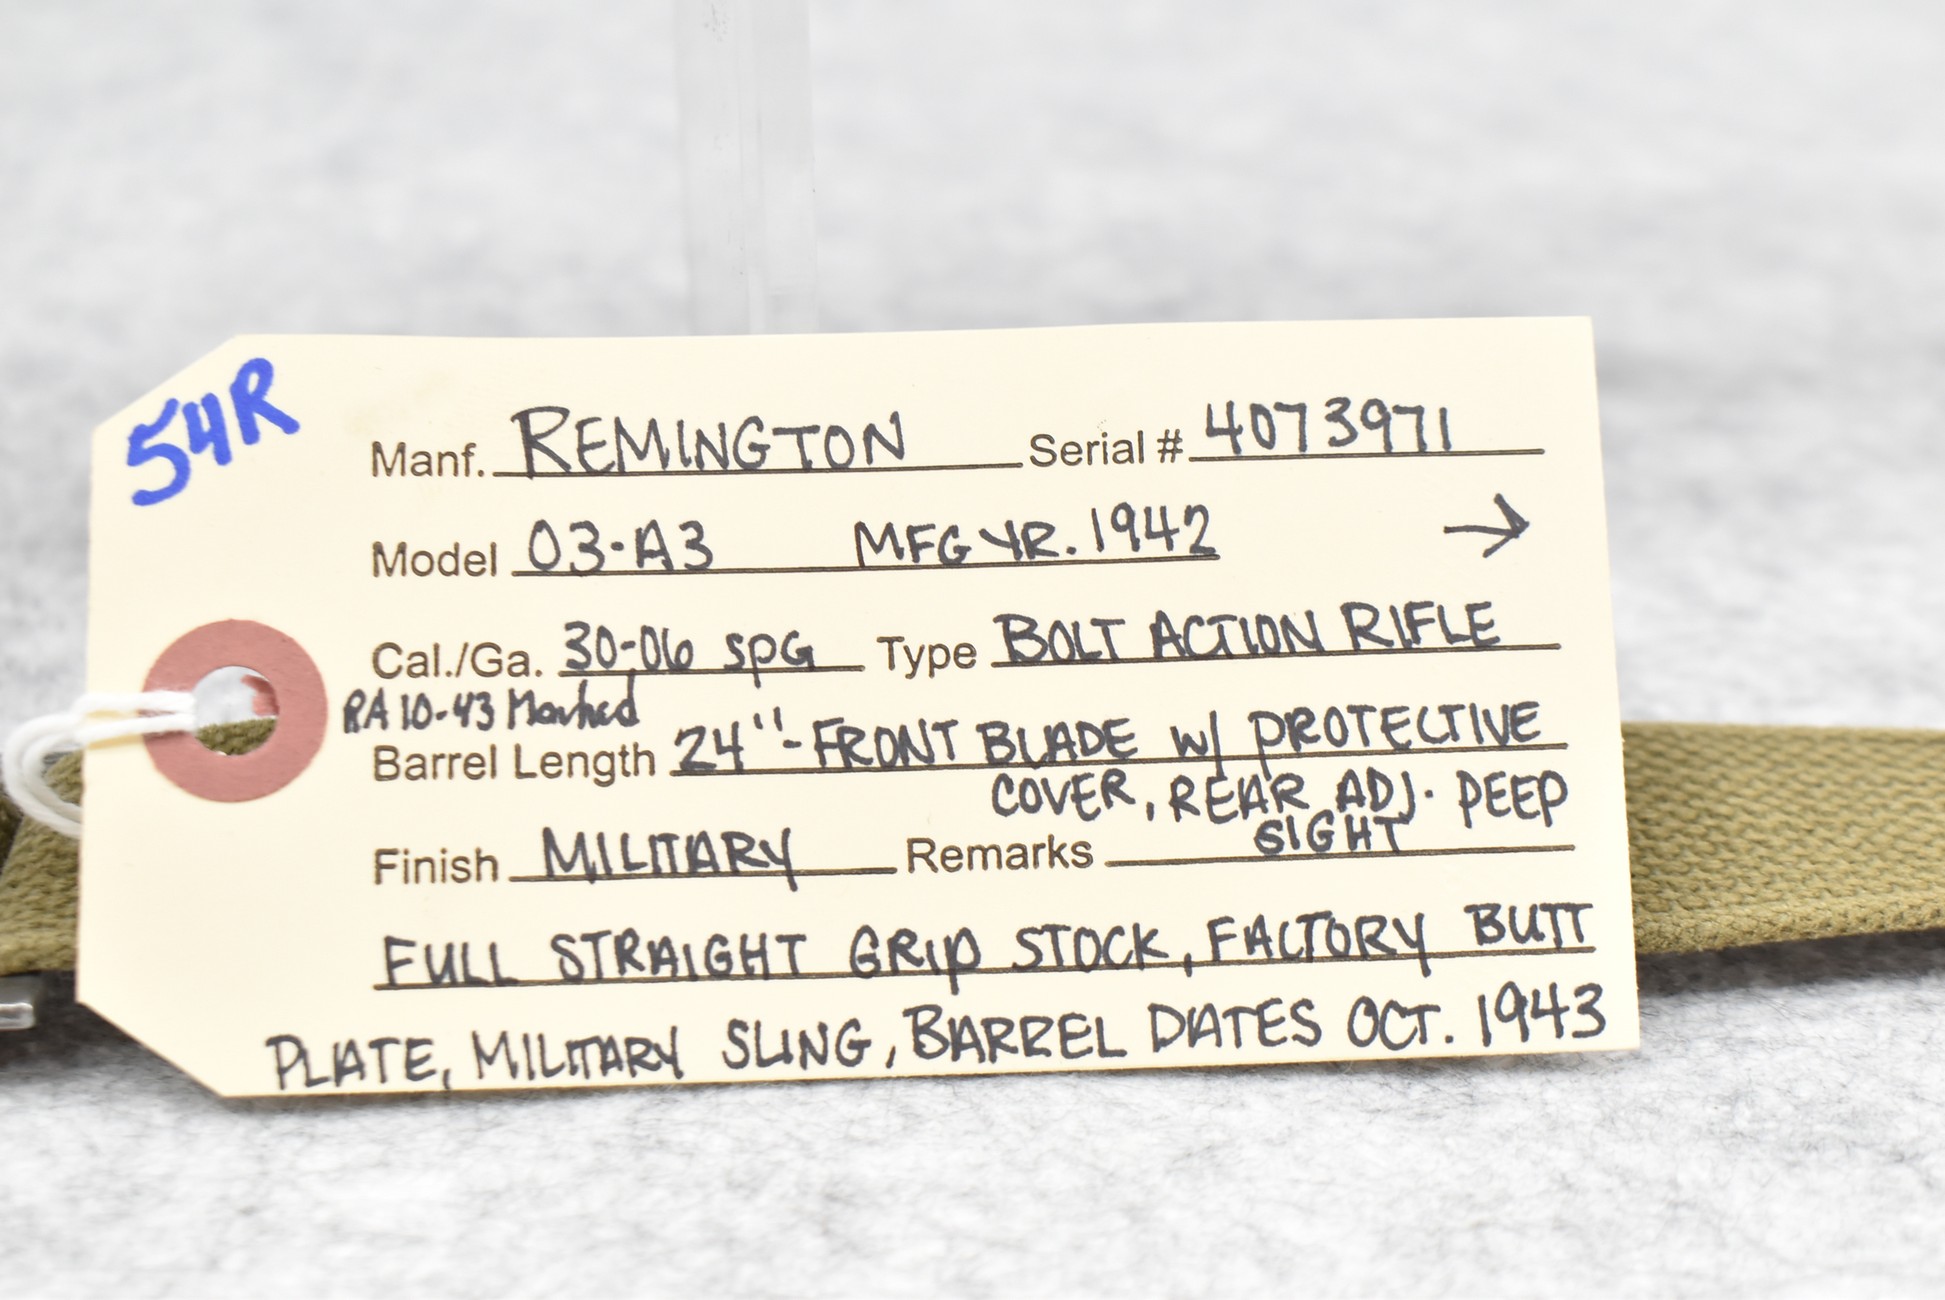 54R
Manf. REMINGTON Serial # 4073971
Model 03-A3 MFG YR. 1942 →
Cal./Ga. 30-06 SPG Type BOLT ACTION RIFLE
RA 10-43 Marked
Barrel Length 24"- FRONT BLADE W/ PROTECTIVE
COVER, REAR ADJ. PEEP
SIGHT
Finish MILITARY Remarks
FULL STRAIGHT GRIP STOCK, FACTORY BUTT
PLATE, MILITARY SLING, BARREL DATES OCT. 1943